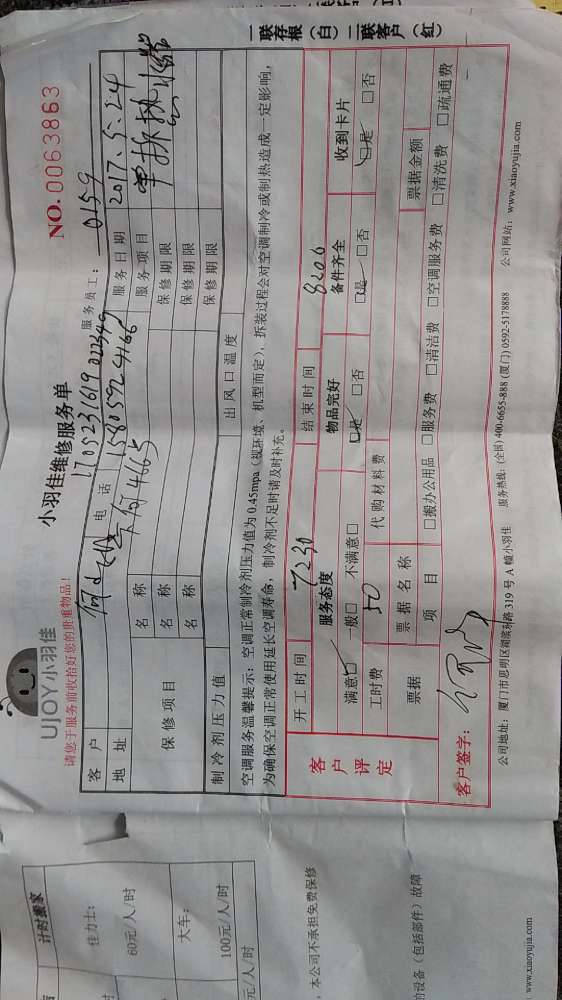 UJOY小羽佳
小羽佳维修服务单
NO. 0063863
请您于服务前收拾好您的贵重物品!
服务员工: 0159
客户 电话 服务日期 2017.5.24
地址 服务项目
保修项目 名称 保修期限
名称 保修期限
名称 保修期限
制冷剂压力值 出风口温度
空调服务温馨提示:空调正常制冷剂压力值为0.45mpa(视环境、机型而定),拆装过程会对空调制冷或制热造成一定影响,
为确保空调正常使用延长空调寿命,制冷剂不足时请及时补充。
客户评定
开工时间 7230 结束时间 8206
服务态度 物品完好 备件齐全 收到卡片
满意□ 一般□ 不满意□ □是 □否 □是 □否 □是 □否
工时费 50 代购材料费
票据 票据名称 票据金额
项目 □搬办公用品 □服务费 □清洁费 □空调服务费 □清洗费 □疏通费
客户签字:
公司地址:厦门市思明区湖滨南路319号A幢小羽佳 服务热线:(全国)400-6655-888 (厦门)0592-5178888 公司网站:www.xiaoyujia.com
一联存根(白) 二联客户(红)
计时搬家
佳力士:
60元/人/时
大车:
100元/人/时
元/人/时
,本公司不承担免费保修
的设备(包括部件)故障
www.xiaoyujia.com